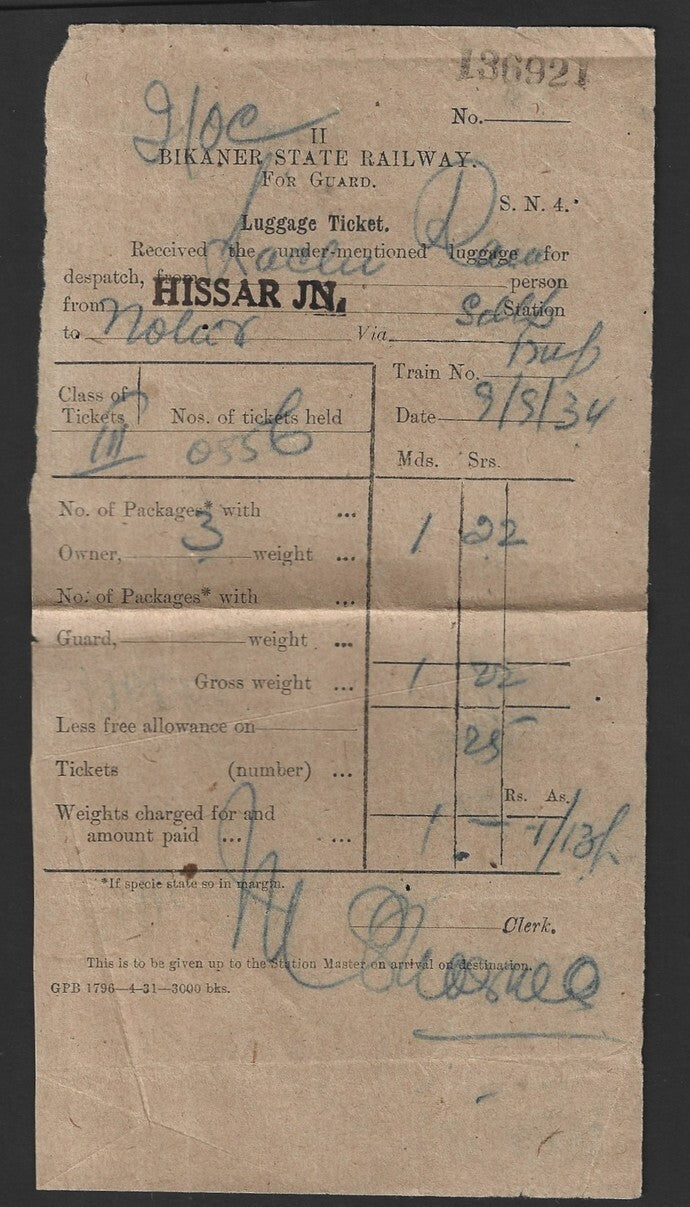 136921
No.
II
BIKANER STATE RAILWAY.
FOR GUARD.
S. N. 4.
Luggage Ticket.
Received the under-mentioned luggage for
despatch, from Ram person
from HISSAR JN. Station
to Nohar Via
Train No.
Class of Tickets Nos. of tickets held
Date 9/9/34
III 0556
Mds. Srs.
No. of Packages* with ...
Owner, 3 weight ... 1 22
No. of Packages* with ...
Guard, weight ...
Gross weight ... 1 22
Less free allowance on
25
Tickets (number) ...
Rs. As.
Weights charged for and
amount paid ... ... 1 — -/13/-
*If specie state so in margin.
Clerk.
This is to be given up to the Station Master on arrival on destination.
GPB 1796—4-31—3000 bks.